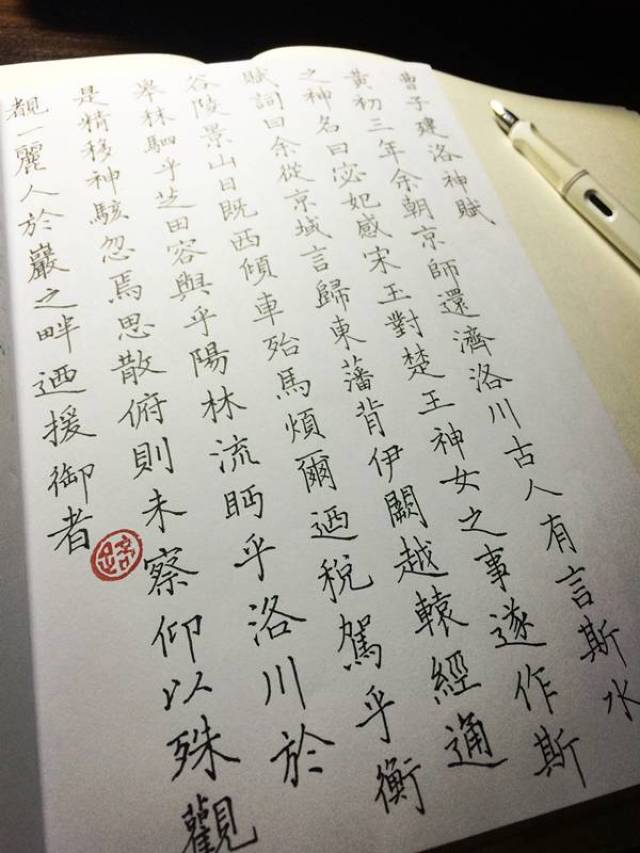 曹子建洛神賦
黃初三年余朝京師還濟洛川古人有言斯水
之神名曰宓妃感宋玉對楚王神女之事遂作斯
賦詞曰余從京域言歸東藩背伊闕越轅經通
谷陵景山日既西傾車殆馬煩爾迺稅駕乎衡
皋秣駟乎芝田容與乎陽林流眄乎洛川於
是精移神駭忽焉思散俯則未察仰以殊觀
覩一麗人於巖之畔迺援御者